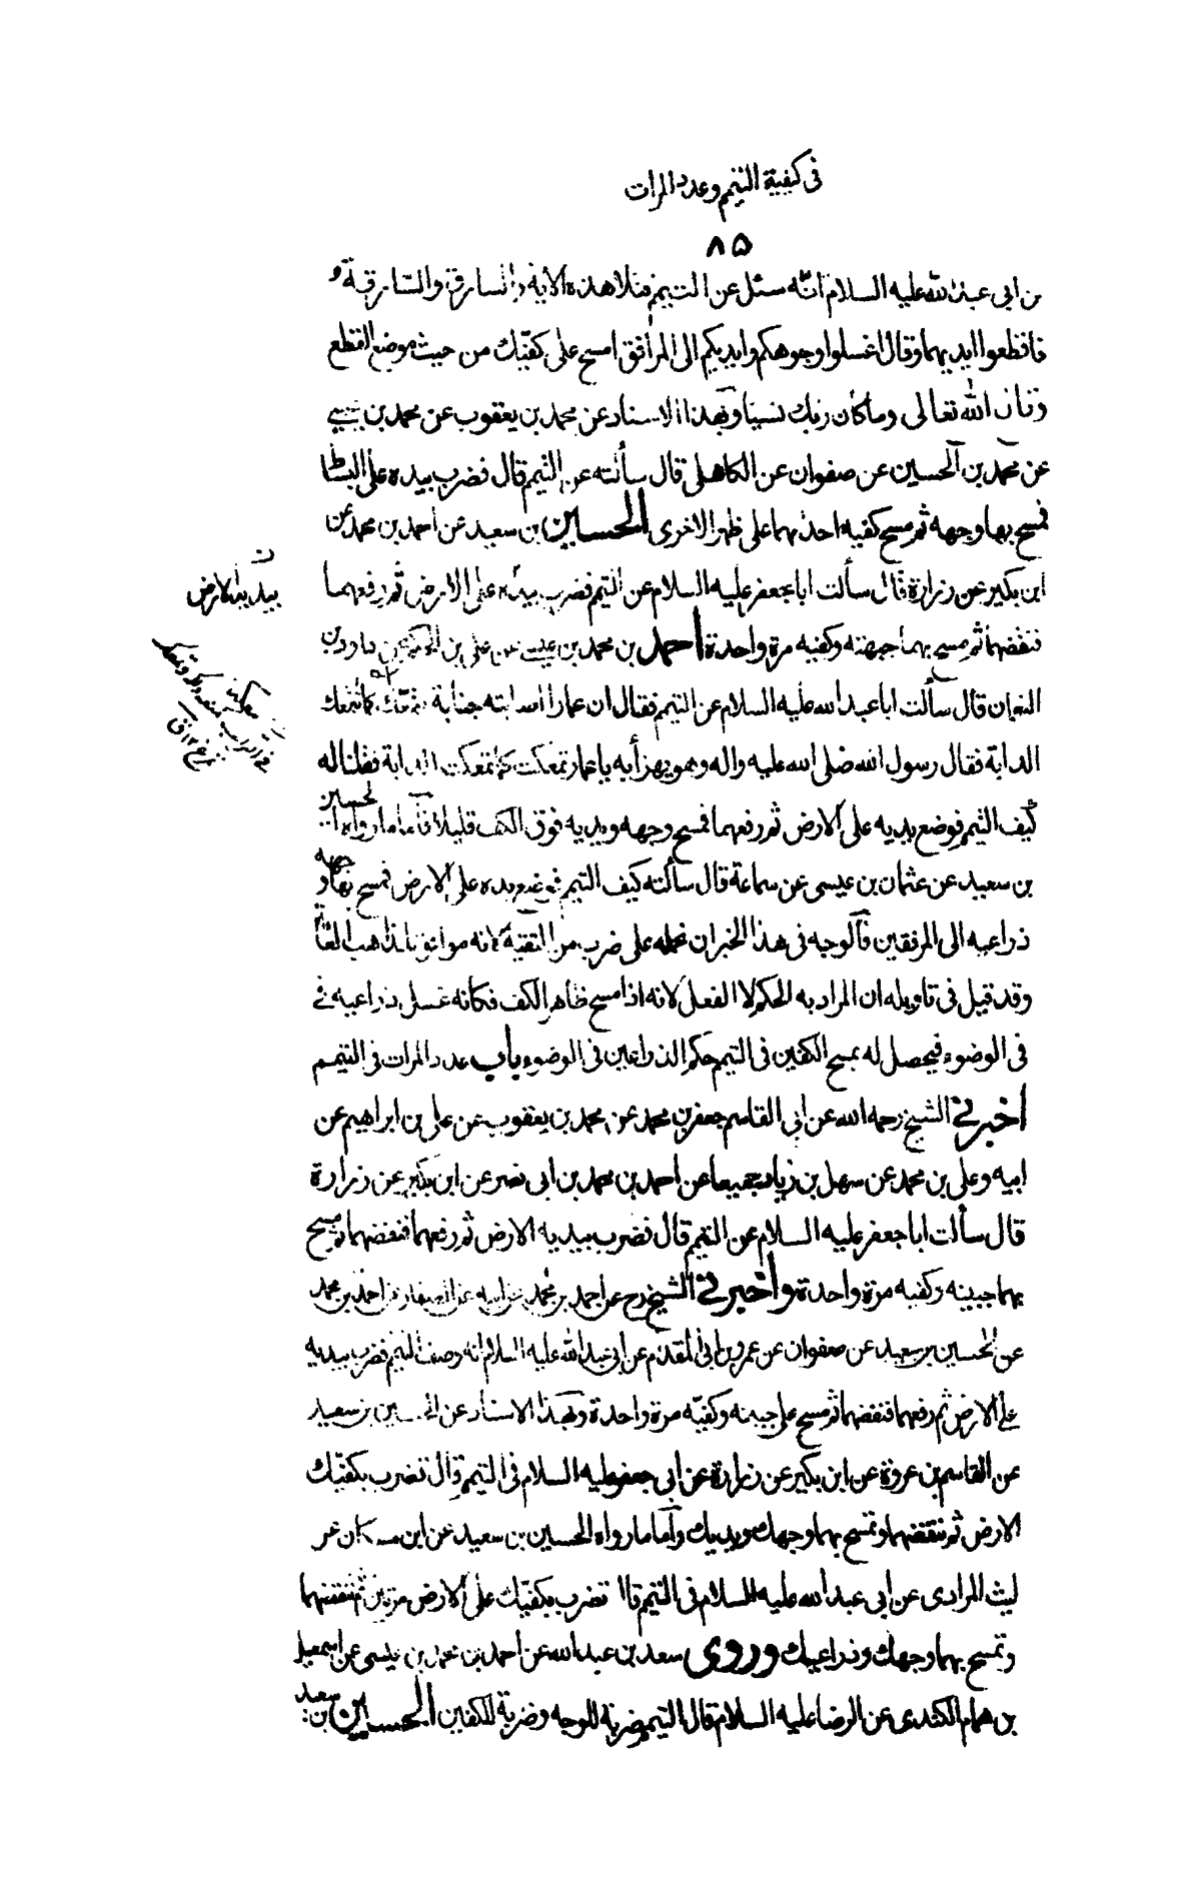 في كيفية التيمم وعدد المرات
٨٥
بن ابى عبدالله عليه السلام انّه سئل عن التيمم فتلا هذه الاية والسارق والسّارقة و
فاقطعوا ايديهما وقال اغسلوا وجوهكم وايديكم الى المرافق امسح على كفّيك من حيث موضع القطع
وقال الله تعالى وما كان ربك نسيا وبهذا الاسناد عن محمد بن يعقوب عن محمد بن يحيى
عن محمد بن الحسين عن صفوان عن الكاهلى قال سألته عن التيمم قال فضرب بيده على البساط
فمسح بها وجهه ثم مسح كفيه احديهما على ظهر الاخرى الحسين بن سعيد عن احمد بن محمد عن
ابن بكير عن زرارة قال سألت اباجعفر عليه السلام عن التيمم فضرب بيده على الارض ثم رفعهما
فنفضهما ثم مسح بهما جبهته وكفيه مرة واحدة احمد بن محمد بن عيسى عن على بن الحكم عن داود بن
النعمان قال سألت اباعبدالله عليه السلام عن التيمم فقال ان عمارا اصابته جنابة فتمعّك كما تتمعك
الدابة فقال رسول الله صلى الله عليه واله وهو يهزأ به ياعمار تمعكت كما تتمعك الدابة فقلنا له
كيف التيمم فوضع يديه على الارض ثم رفعهما فمسح وجهه ويديه فوق الكف قليلا فاما ما رواه الحسين
بن سعيد عن عثمان بن عيسى عن سماعة قال سألته كيف التيمم فوضع يده على الارض فمسح بها وجهه و
ذراعيه الى المرفقين فالوجه في هذا الخبر ان نحمله على ضرب من التقية لانه موافق لمذاهب العامّة
وقد قيل في تاويله ان المراد به الحكم لا الفعل لانه اذا مسح ظاهر الكف فكانه غسل ذراعيه في
في الوضوء فيحصل له بمسح الكفين في التيمم حكم الذراعين في الوضوء باب عدد المرات في التيمم
اخبرني الشيخ رحمه الله عن ابي القاسم جعفر بن محمد عن محمد بن يعقوب عن على بن ابراهيم عن
ابيه وعلى بن محمد عن سهل بن زياد جميعا عن احمد بن محمد بن ابى نصر عن ابن بكير عن زرارة
قال سألت اباجعفر عليه السلام عن التيمم قال فضرب بيديه الارض ثم رفعهما فنفضهما ثم مسح
بهما جبينه وكفيه مرة واحدة واخبرني الشيخ رح عن احمد بن محمد عن ابيه عن الصفار عن احمد بن محمد
عن الحسين بن سعيد عن صفوان عن عمرو بن ابى المقدام عن ابى عبدالله عليه السلام انه وصف التيمم فضرب بيديه
على الارض ثم رفعهما فنفضهما ثم مسح على جبينه وكفيّه مرة واحدة وبهذا الاسناد عن الحسين بن سعيد
عن القاسم بن عروة عن ابن بكير عن زرارة عن ابى جعفر عليه السلام في التيمم قال تضرب بكفيّك
الارض ثم تنفضهما وتمسح بهما وجهك ويديك وأما ما رواه الحسين بن سعيد عن ابن مسكان عن
ليث المرادى عن ابى عبدالله عليه السلام في التيمم قال تضرب بكفيّك على الارض مرتين ثم تنفضهما
وتمسح بهما وجهك وذراعيك وروى سعد بن عبدالله عن احمد بن محمد بن عيسى عن اسمعيل
بن همام الكندى عن الرضا عليه السلام قال التيمم ضربة للوجه وضربة للكفين الحسين بن سعيد
ن
بيديه الارض